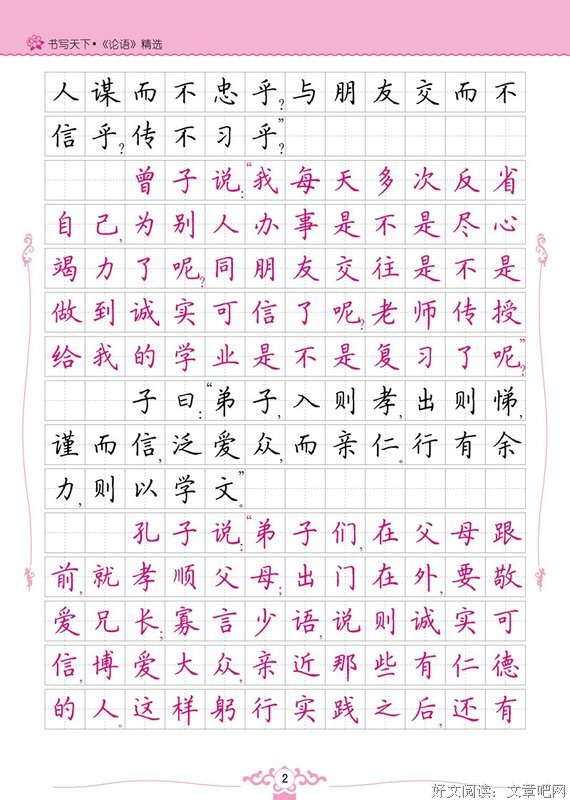 书写天下•《论语》精选
人谋而不忠乎?与朋友交而不
信乎?传不习乎?”
曾子说:“我每天多次反省
自己,为别人办事是不是尽心
竭力了呢?同朋友交往是不是
做到诚实可信了呢?老师传授
给我的学业是不是复习了呢?”
子曰:“弟子,入则孝,出则悌,
谨而信,泛爱众,而亲仁。行有余
力,则以学文。”
孔子说:“弟子们,在父母跟
前,就孝顺父母;出门在外,要敬
爱兄长;寡言少语,说则诚实可
信,博爱大众,亲近那些有仁德
的人。这样躬行实践之后,还有
2
好文阅读:文章吧网